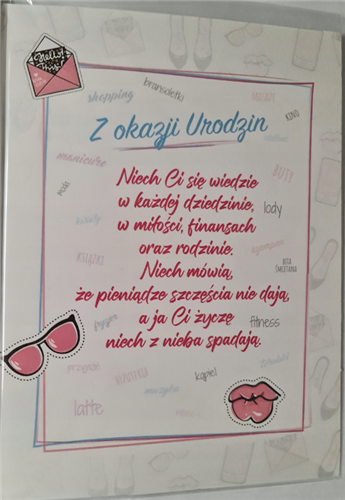 Hello!
shopping
bransoletki
KINO
Z okazji Urodzin
manicure
BUTY
Niech Ci się wiedzie
w każdej dziedzinie,
lody
w miłości, finansach
kwiaty
oraz rodzinie.
KSIĄŻKI
BITA
ŚMIETANA
Niech mówią,
że pieniądze szczęścia nie dają,
a ja Ci życzę
fitness
niech z nieba spadają.
przyjaźń
kąpiel
BIŻUTERIA
muzyka
latte